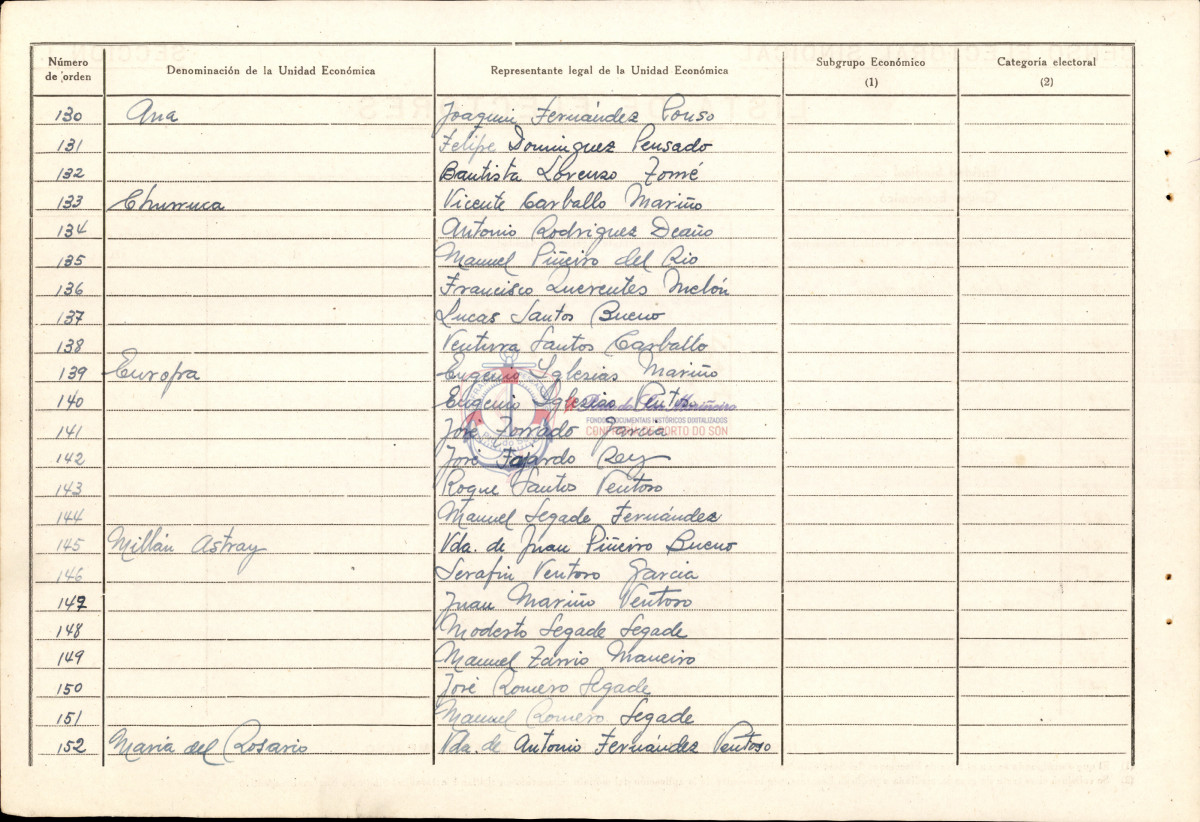 Número de orden Denominación de la Unidad Económica Representante legal de la Unidad Económica Subgrupo Económico (1) Categoría electoral (2)
130 Ana Joaquin Fernández Pouso
131 Felipe Dominguez Pensado
132 Bautista Lorenzo Torré
133 Churruca Vicente Carballo Mariño
134 Antonio Rodriguez Deaño
135 Manuel Piñeiro del Rio
136 Francisco Querentes Melón
137 Lucas Santos Bueno
138 Ventura Santos Carballo
139 Europa Eugenio Iglesias Mariño
140 Eugenio Iglesias Ventoso
141 José Torrado Garcia
FONDOS DOCUMENTAIS HISTÓRICOS DIXITALIZADOS
CONFRARÍA DE PORTO DO SON
142 José Fajardo Rey
143 Roque Santos Ventoso
144 Manuel Segade Fernández
145 Millán Astray Vda. de Juan Piñeiro Bueno
146 Serafin Ventoso Garcia
147 Juan Mariño Ventoso
148 Modesto Segade Segade
149 Manuel Maneiro
150 José Romero Segade
151 Manuel Romero Segade
152 Maria del Rosario Vda. de Antonio Fernández Ventoso